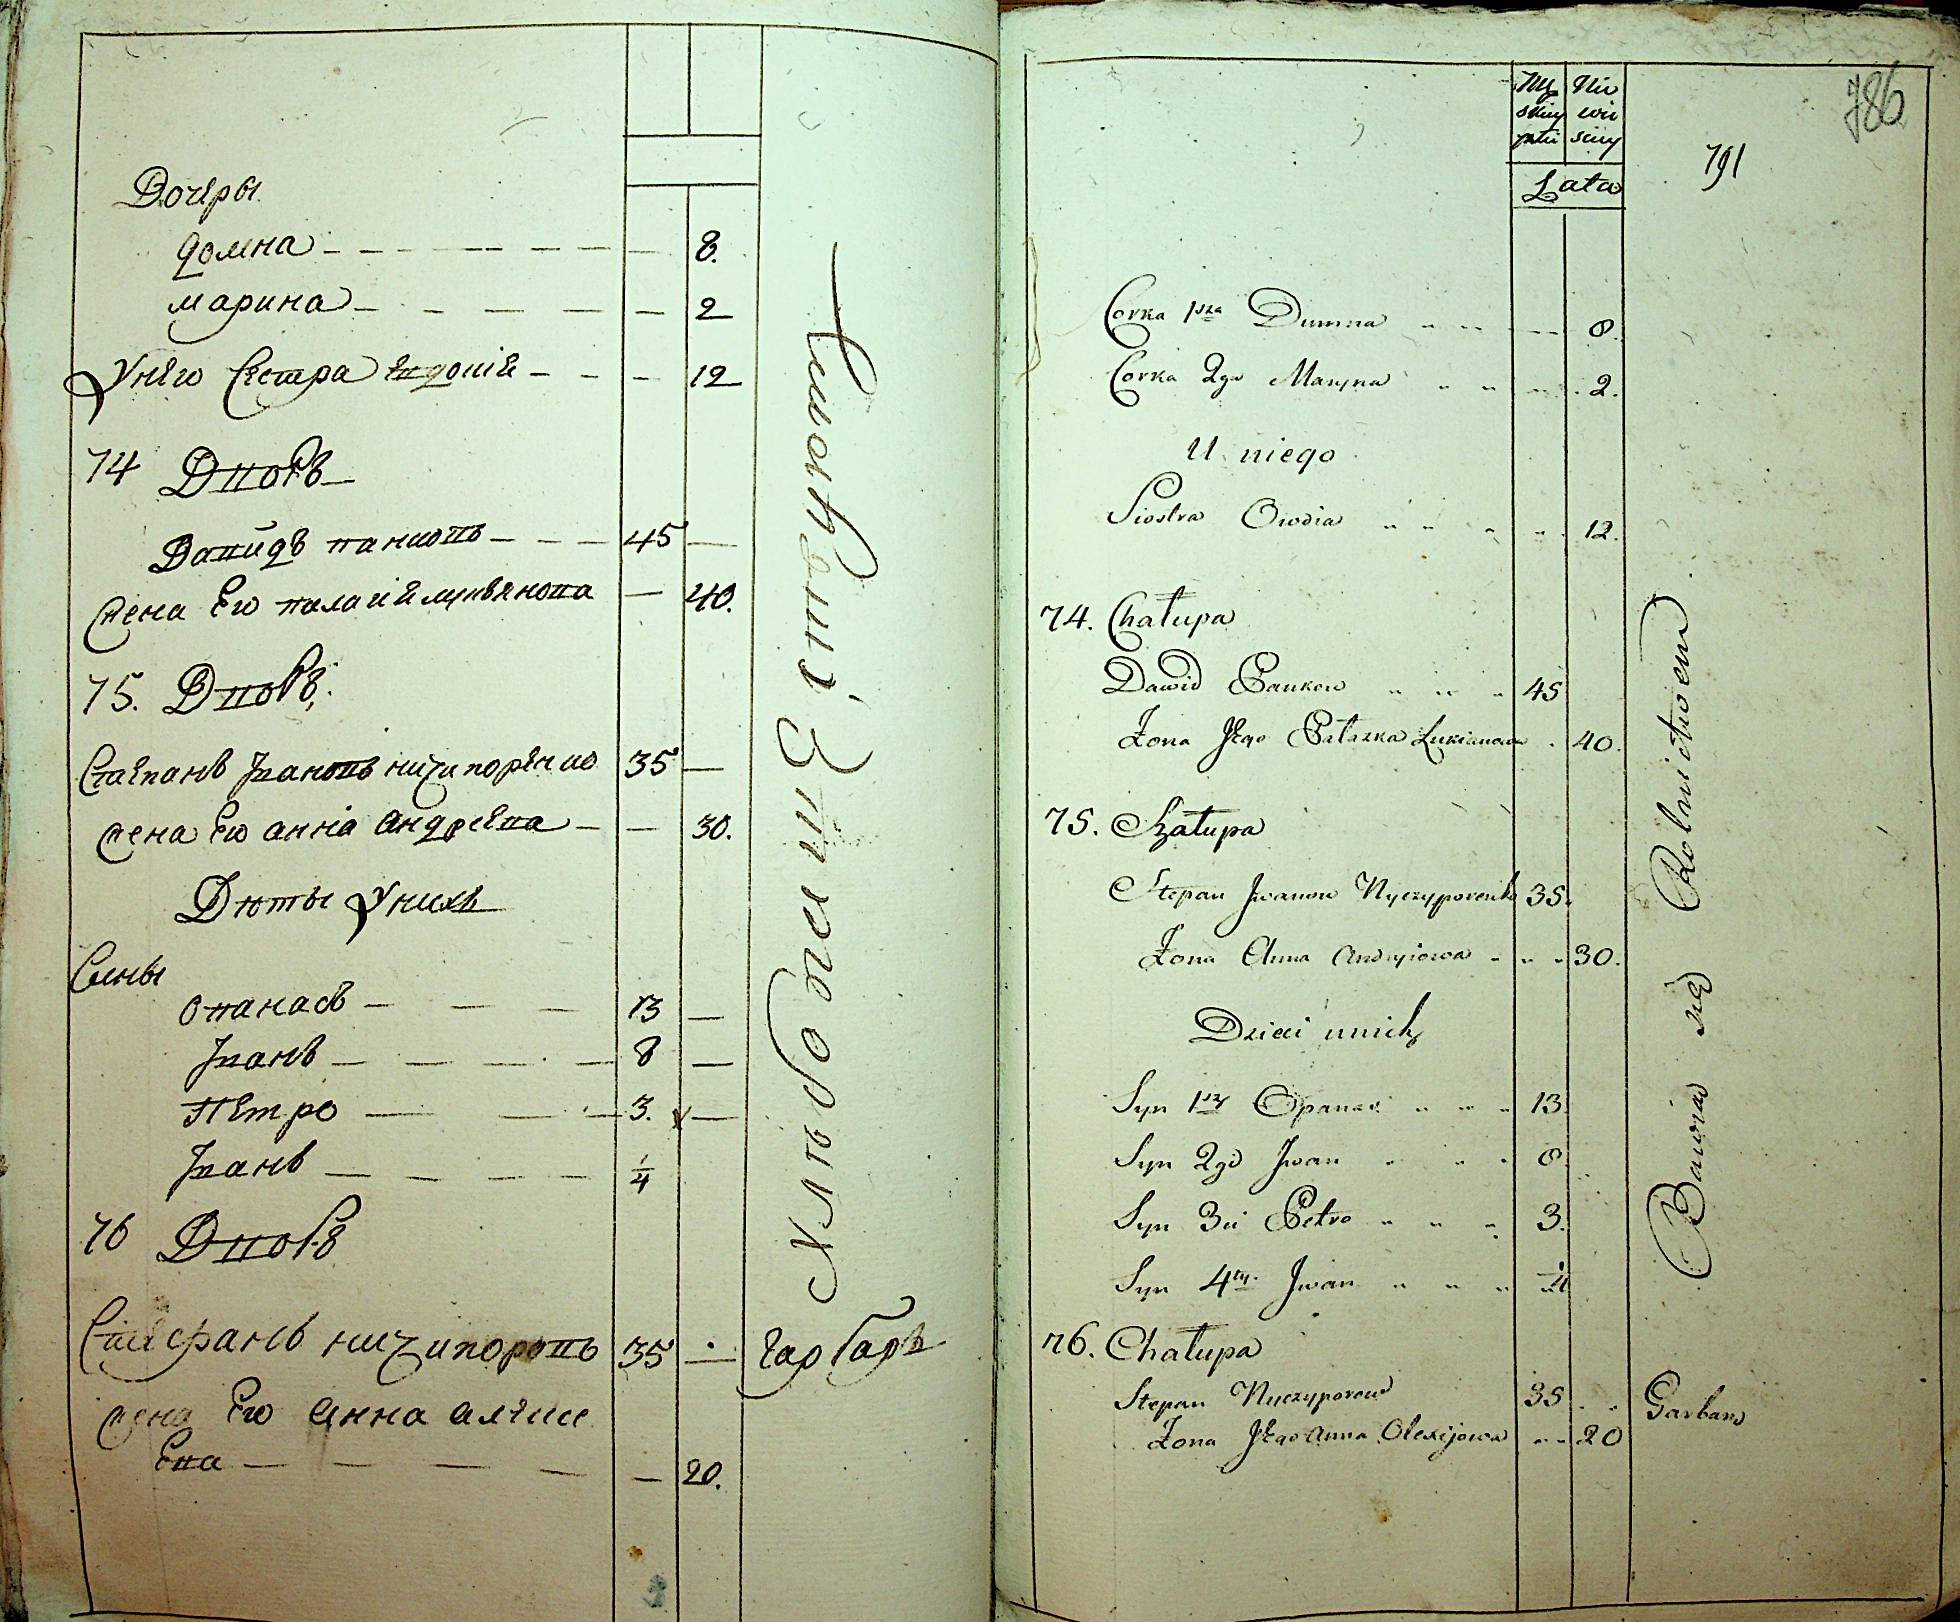 Дочеры
Домна — — — 8.
Марина — — — 2
У него Сестра Евдокія — — 12
74 Дворъ
Давидъ панковъ — — 45 —
жена Его палагія лукьянова — 40.
75. Дворъ
Степанъ Ивановъ ничипоренко 35 —
жена Его анна Андреева — — 30.
Дѣты У нихъ
Сыны
Опанасъ — — — 13 —
Иванъ — — — 8 —
Петро — — — 3. —
Иванъ — — — 1/4
76 Дворъ
Стефанъ ничипоровъ 35 —
жена Его Анна алексе
Ева — — — 20.
Хлѣбопашествуютъ
гарбаръ
786
791
Mę Nie
skiey wie
płci sciey
Lata
Corka 1sza Dumna 8.
Corka 2ga Maryna 2.
U niego
Siostra Owdia 12.
74. Chałupa
Dawid Pankow 45
Żona Jego Pałazka Lukianowa 40.
75. Chałupa
Stepan Jwanow Nyczyporenko 35.
Żona Anna Andryiowa 30.
Dzieci u nich
Syn 1szy Opanas 13
Syn 2gi Jwan 8.
Syn 3ci Petro 3.
Syn 4ty Jwan 1/4
76. Chałupa
Stepan Nyczyporow 35
Żona Jego Anna Olexijowa 20
Bawią się Rolnictwem
Garbarz